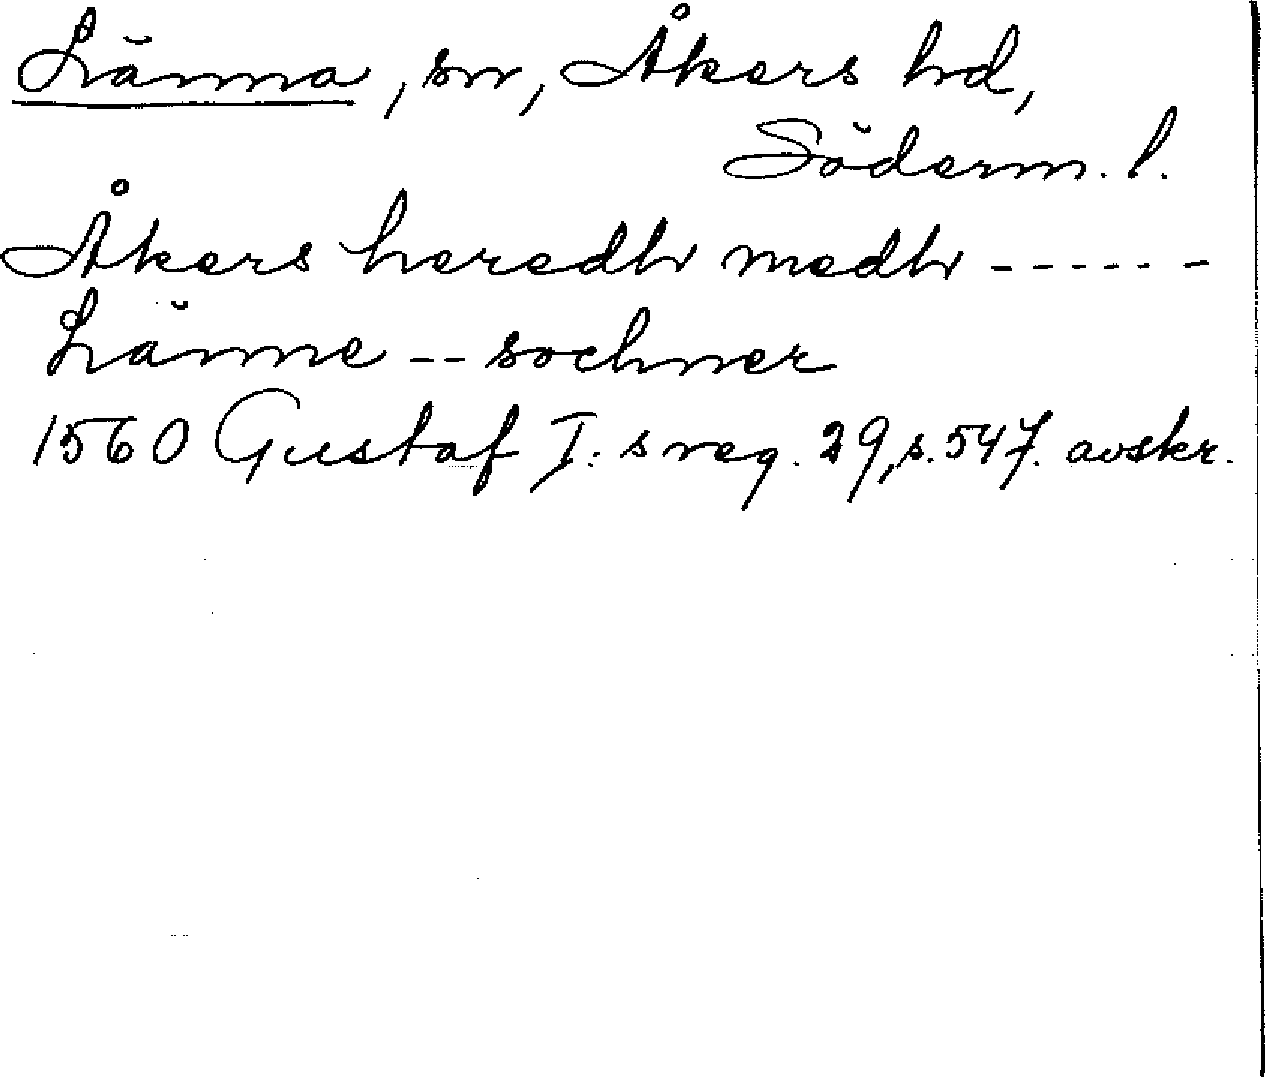 Länna, sn, Åkers hd,
Söderm. l.
Åkersheredh medh ------
Länne -- sochner
1560 Gustaf I:s reg. 29, s. 547. avskr.